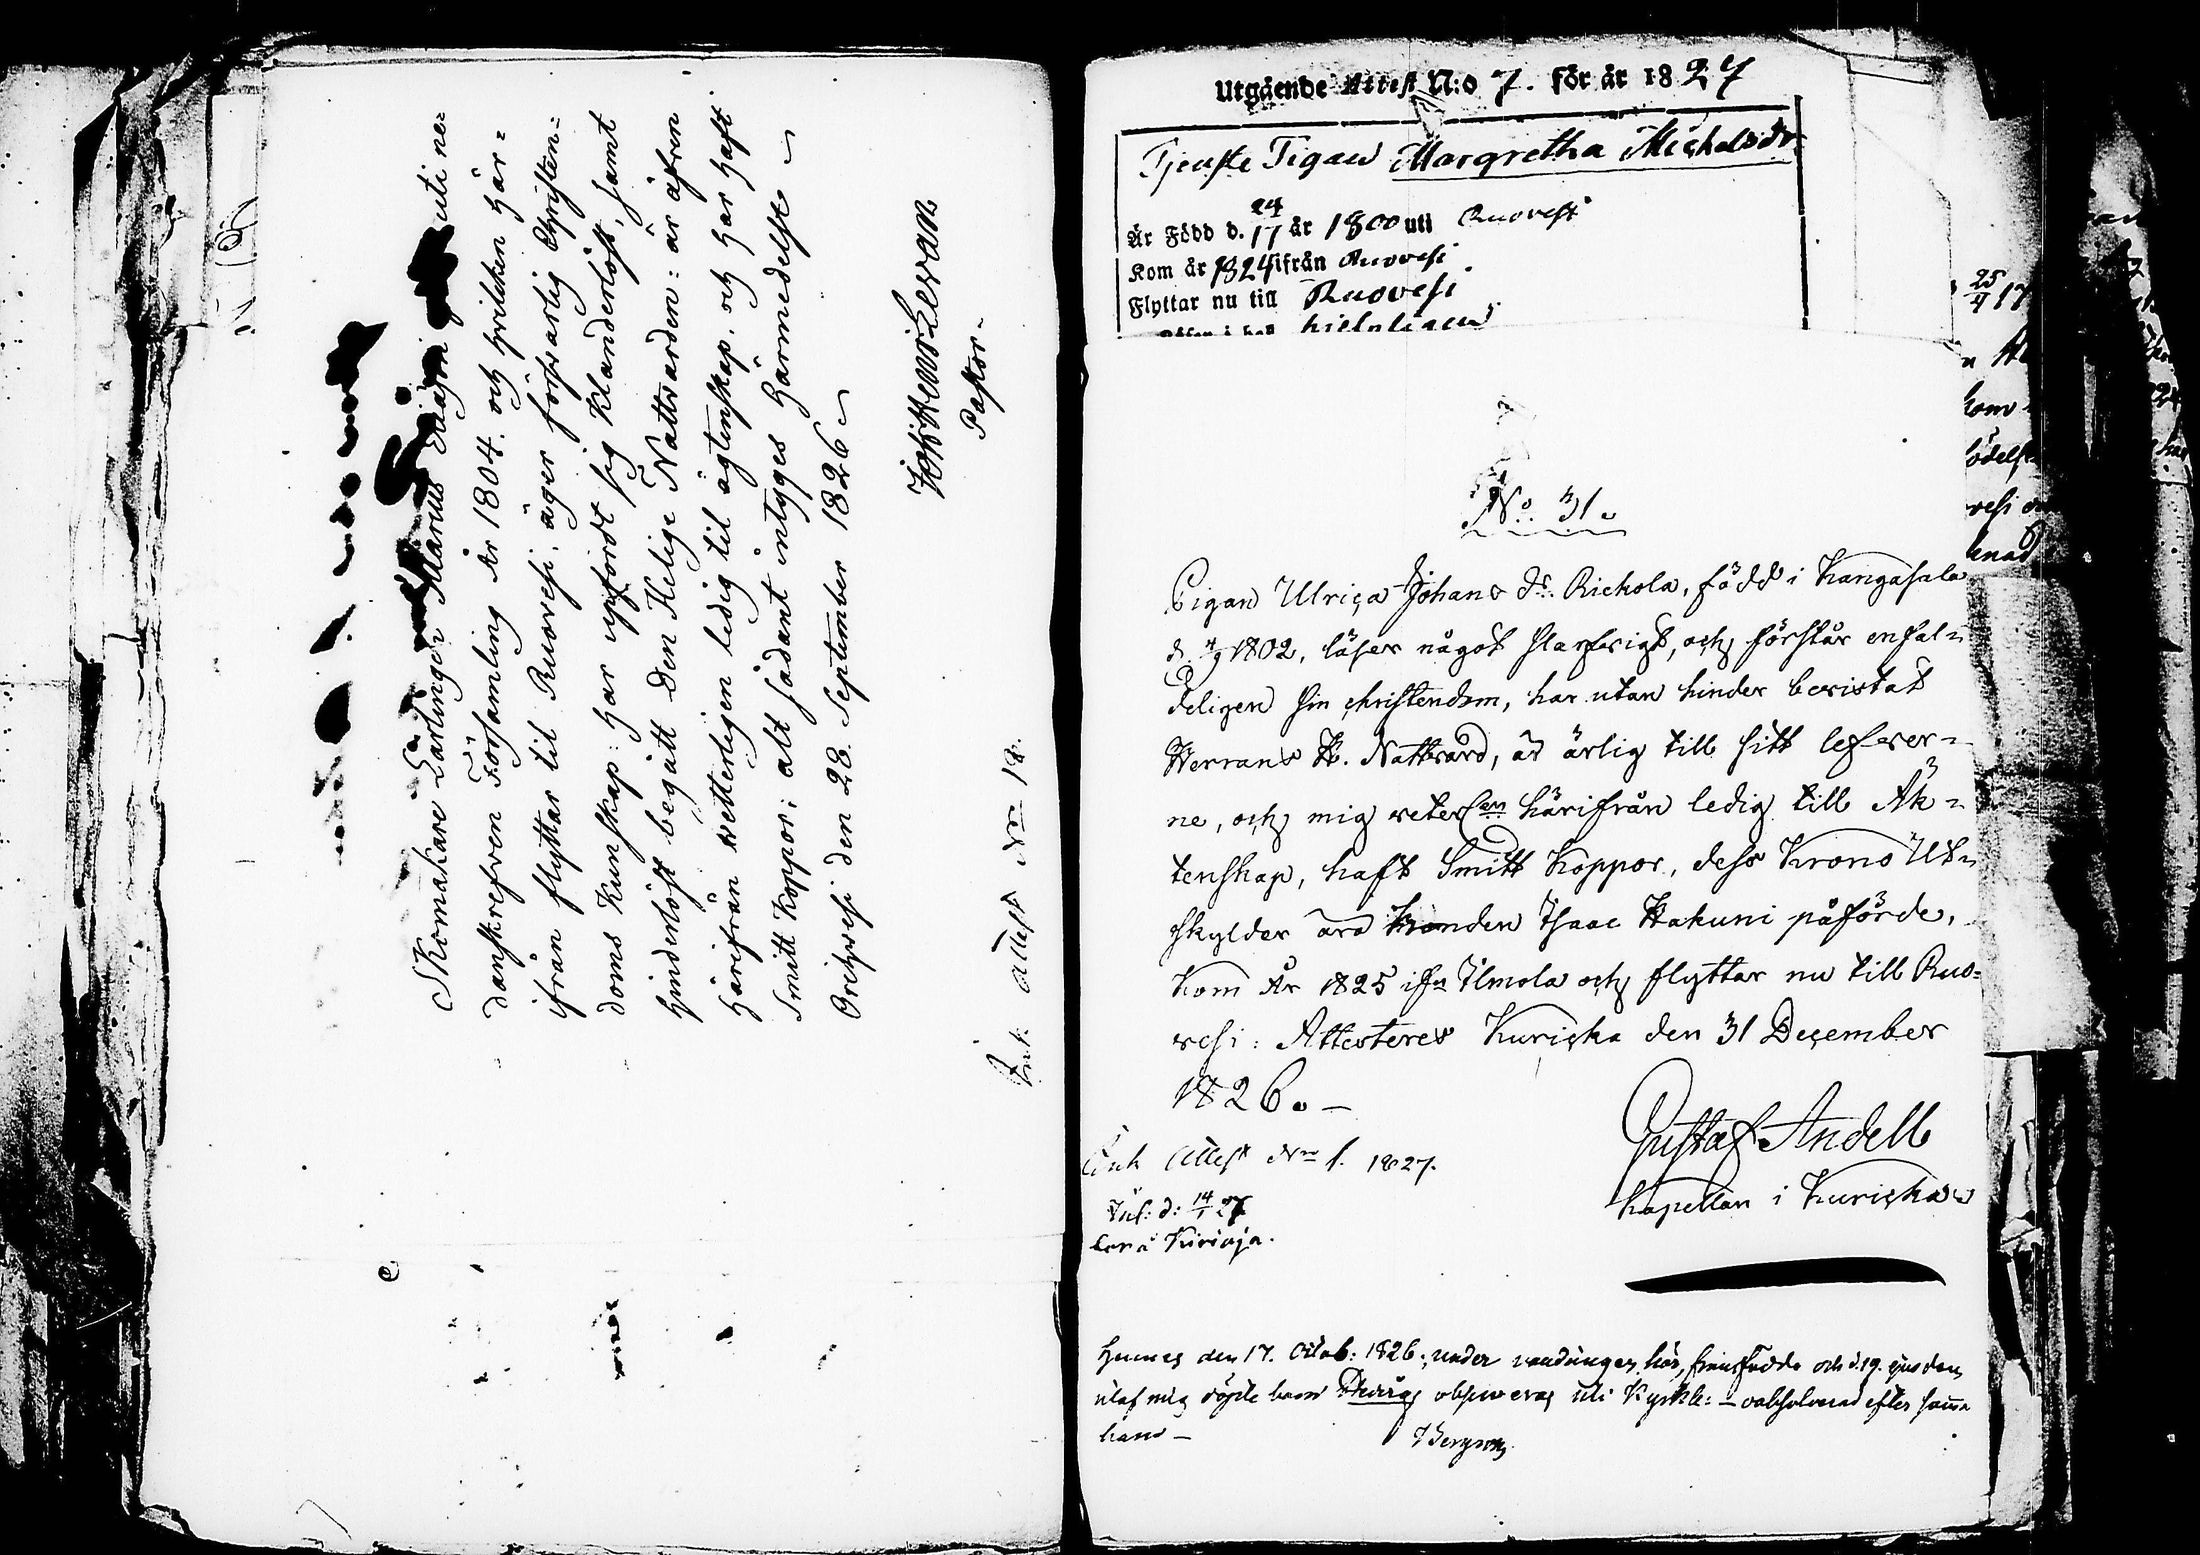 Skomakare Lärlingen Marius uti ne-
danskrefven Församling År 1804. och hvilken här-
ifrån flyttar til Ruovesi, äger försvarlig Christen-
doms Kunskap: har upfördt sig klanderlöst, samt
hinderlöst begått den Helige Nattvarden: är äfven
härifrån vetterligen ledig til ägtenskap. och har haft
Smitt koppor; alt sådant intygges härmedelst
Orihvesi den 28 September 1826
Pastor.
Ink. Attest Nro 18.
Utgående Attest N:o 7. för år 1827
Tjenste Pigan Margretha Michelsdr
Är Född d. 24/17 år 1800 uti Ruovesi
Kom år 1824 ifrån Ruovesi
Flyttar nu till Ruovesi
No. 31.
Pigan Ulrica Johans dr. Rickola, född i Kangasala
d. 4/9 1802, läser något slarfvigt, och förstår enfal-
deligen sin christendom, har utan hinder bevistat
Herrans H. Nattvard, är ärlig till sitt lefver-
ne, och mig veterl.en härifrån ledig till Äk-
tenskap, haft Smitt Koppor, dess Krono Ut-
skylder äro bonden Isaac Hakuni påförde,
Kom År 1825 ifn Ilmola och flyttar nu till Ruo-
vesi: Attesteres Kuricka den 31 December
1826.
Gustaf Andell
Kapellan i Kuricka
Ink Attest Nro 1. 1827.
Inl: d: 14/1 27
den 17. Octob: 1826; under här, födde och d. 19.
af mig döpte barn uti Kyrkb: efter samma